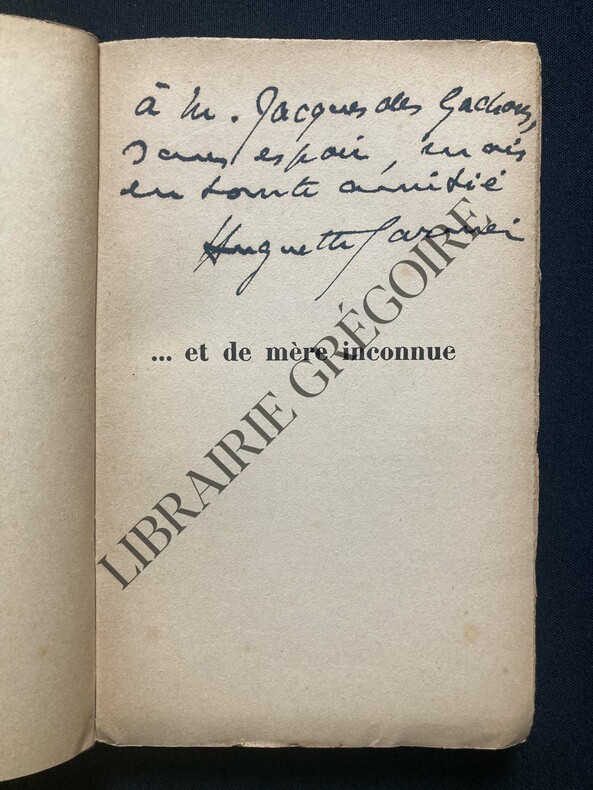 à M. Jacques des Gachons,
sans espoir, mais
en toute amitié
Huguette Garnier
... et de mère inconnue
LIBRAIRIE GRÉGOIRE